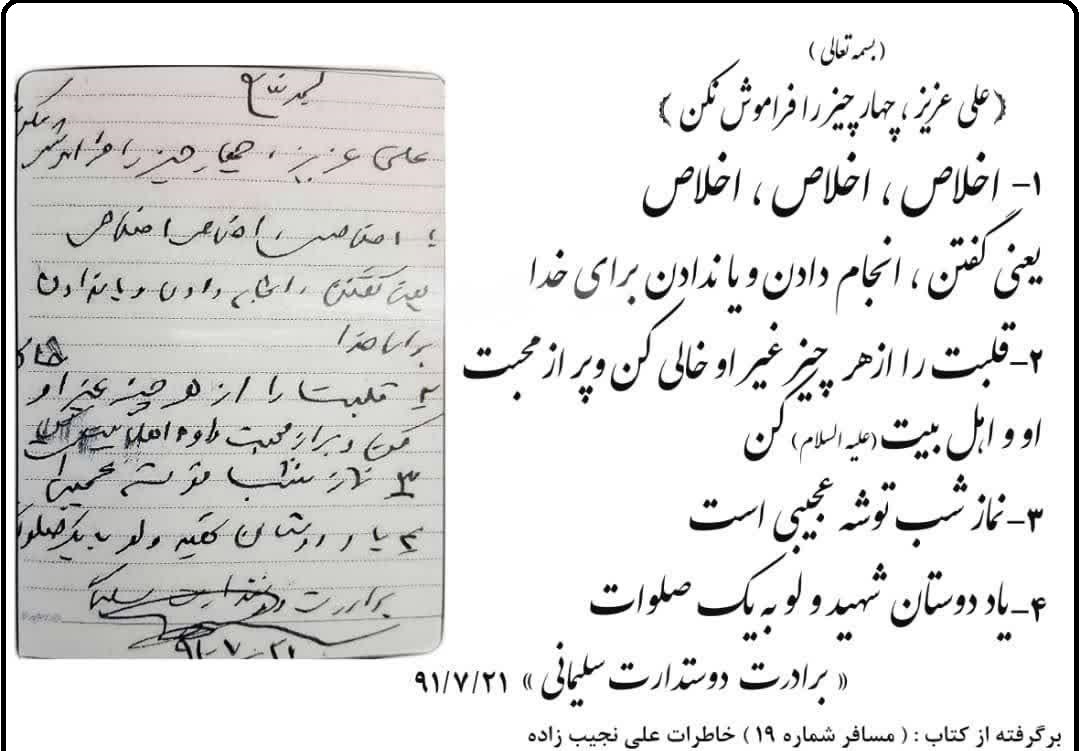 ( بسمه تعالی )
﴿ علی عزیز ، چهار چیز را فراموش نکن ﴾
۱- اخلاص ، اخلاص ، اخلاص
یعنی گفتن ، انجام دادن و یا ندادن برای خدا
۲- قلبت را از هر چیز غیر او خالی کن و پر از محبت
او و اهل بیت (علیه السلام) کن
۳- نماز شب توشه عجیبی است
۴- یاد دوستان شهید و لو به یک صلوات
« برادرت دوستدارت سلیمانی » ۹۱/۷/۲۱
برگرفته از کتاب : ( مسافر شماره ۱۹ ) خاطرات علی نجیب زاده
بسمه تعالی
علی عزیز ، چهار چیز را فراموش نکن
۱ـ اخلاص ، اخلاص ، اخلاص
یعنی گفتن ، انجام دادن و یا ندادن
برای خدا
۲ـ قلبت را از هر چیز غیر او خالی
کن و پر از محبت او و اهل بیت کن
۳ـ نماز شب توشه عجیبی
۴ـ یاد دوستان و لو با یک صلوات
برادرت دوستدارت سلیمانی
۹۱/۷/۲۱